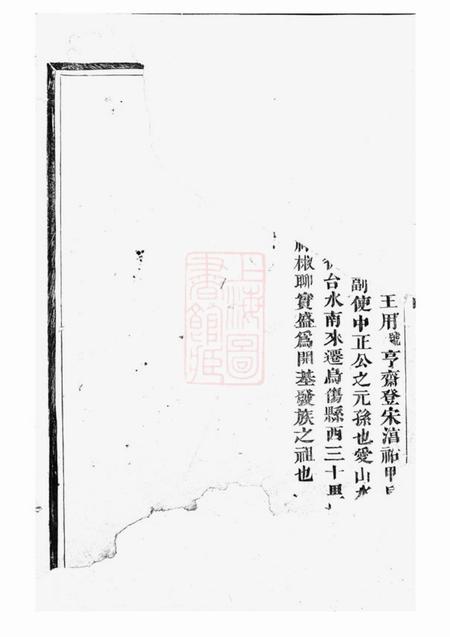 王用號亨齋登宋淳祐甲
副使中正公之元孫也愛山水
台水南來遷烏傷縣西三十里
椒聊實盛爲開基發族之祖也
上海圖書館藏